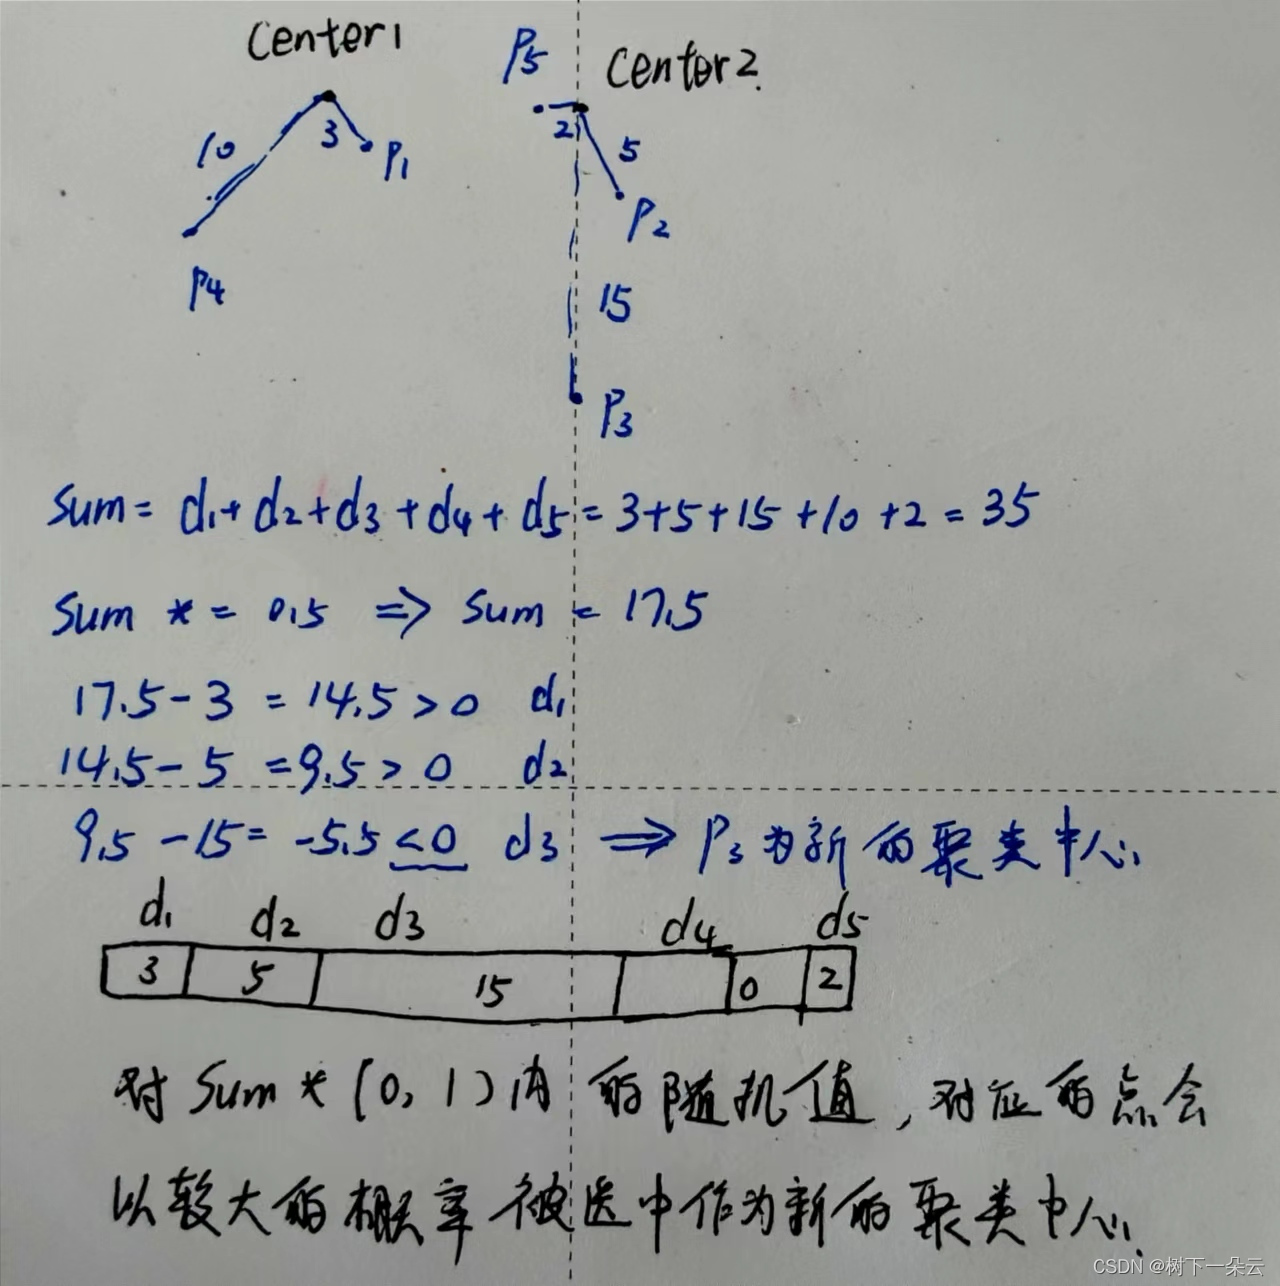 Center1
P5 Center2.
10 3 P1
2 5
P2
P4
15
P3
Sum = d1+d2+d3+d4+d5=3+5+15+10+2=35
Sum *= 0.5 => Sum = 17.5
17.5-3 = 14.5>0 d1
14.5-5 =9.5>0 d2
9.5-15= -5.5<0 d3 => P3为新的聚类中心
d1 d2 d3 d4 d5
3 5 15 0 2
对Sum*(0,1)内的随机值,对应的点会
以较大的概率被选中作为新的聚类中心.
CSDN @树下一朵云